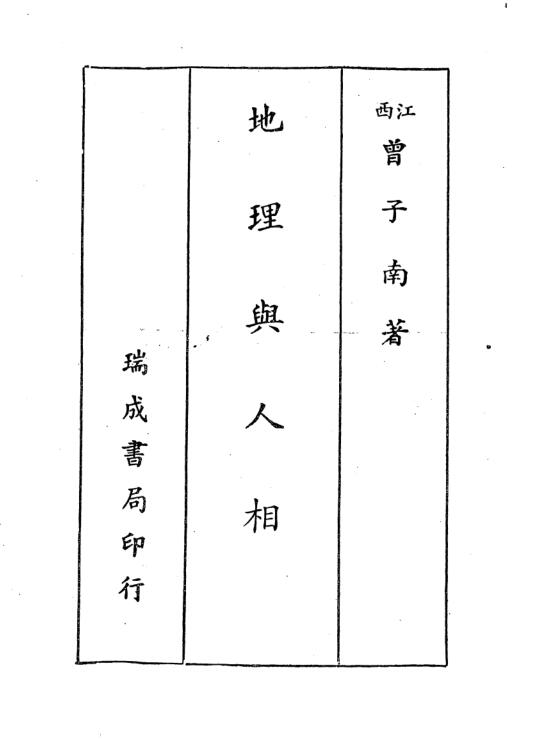 江西 曾子南著
地理與人相
瑞成書局印行